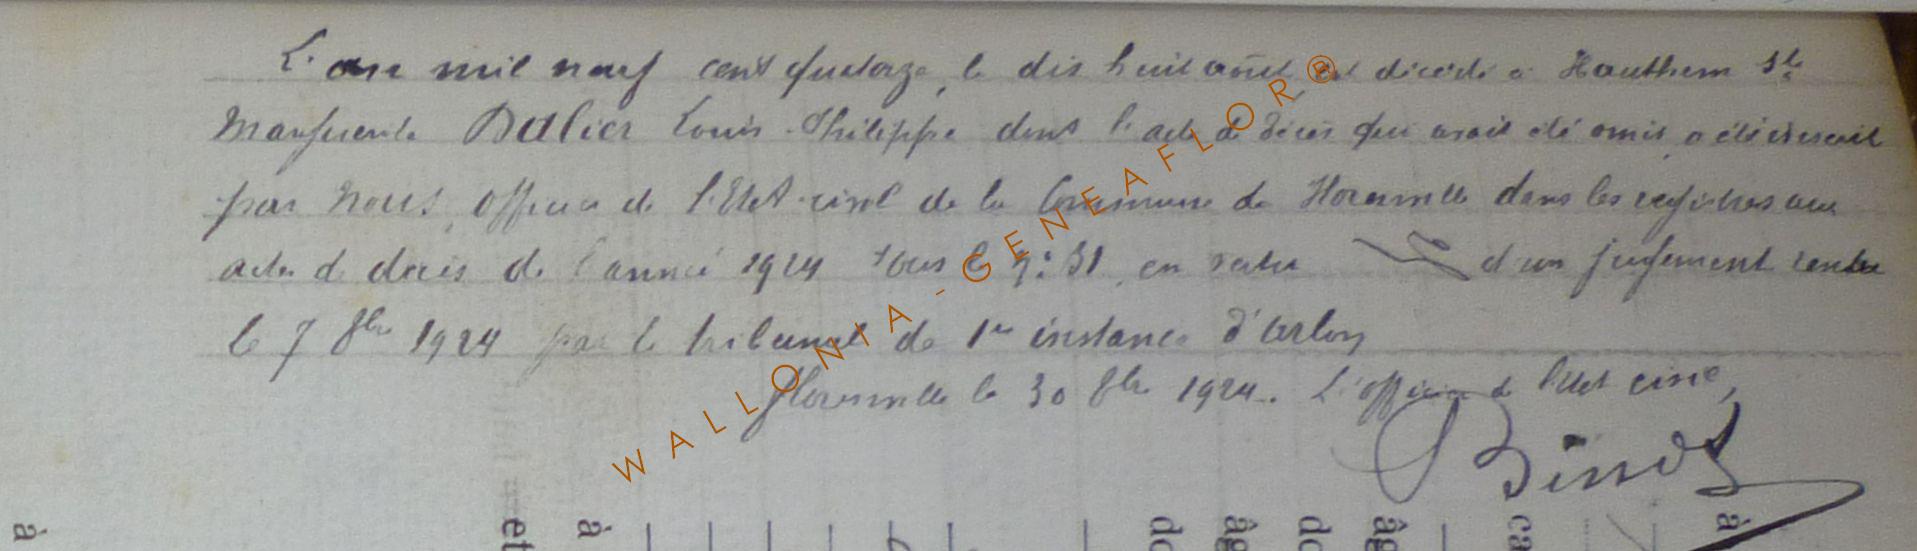 L'an mil neuf cent quatorze, le dix huit août est décédé à Hauthem Ste
Marguerite Dalier Louis Philippe dont l'acte de décès qui avait été omis, a été inscrit
par nous, officier de l'Etat-civil de la Commune de Florenville dans les registres aux
actes de décès de l'année 1924 sous le n° 31 en vertu d'un jugement rendu
le 7 8bre 1924 par le tribunal de 1re instance d'Arlon
Florenville le 30 8bre 1924. L'officier de l'Etat civil,
WALLONIA-GENEAFLOR®
à et à do âg do âg ca à